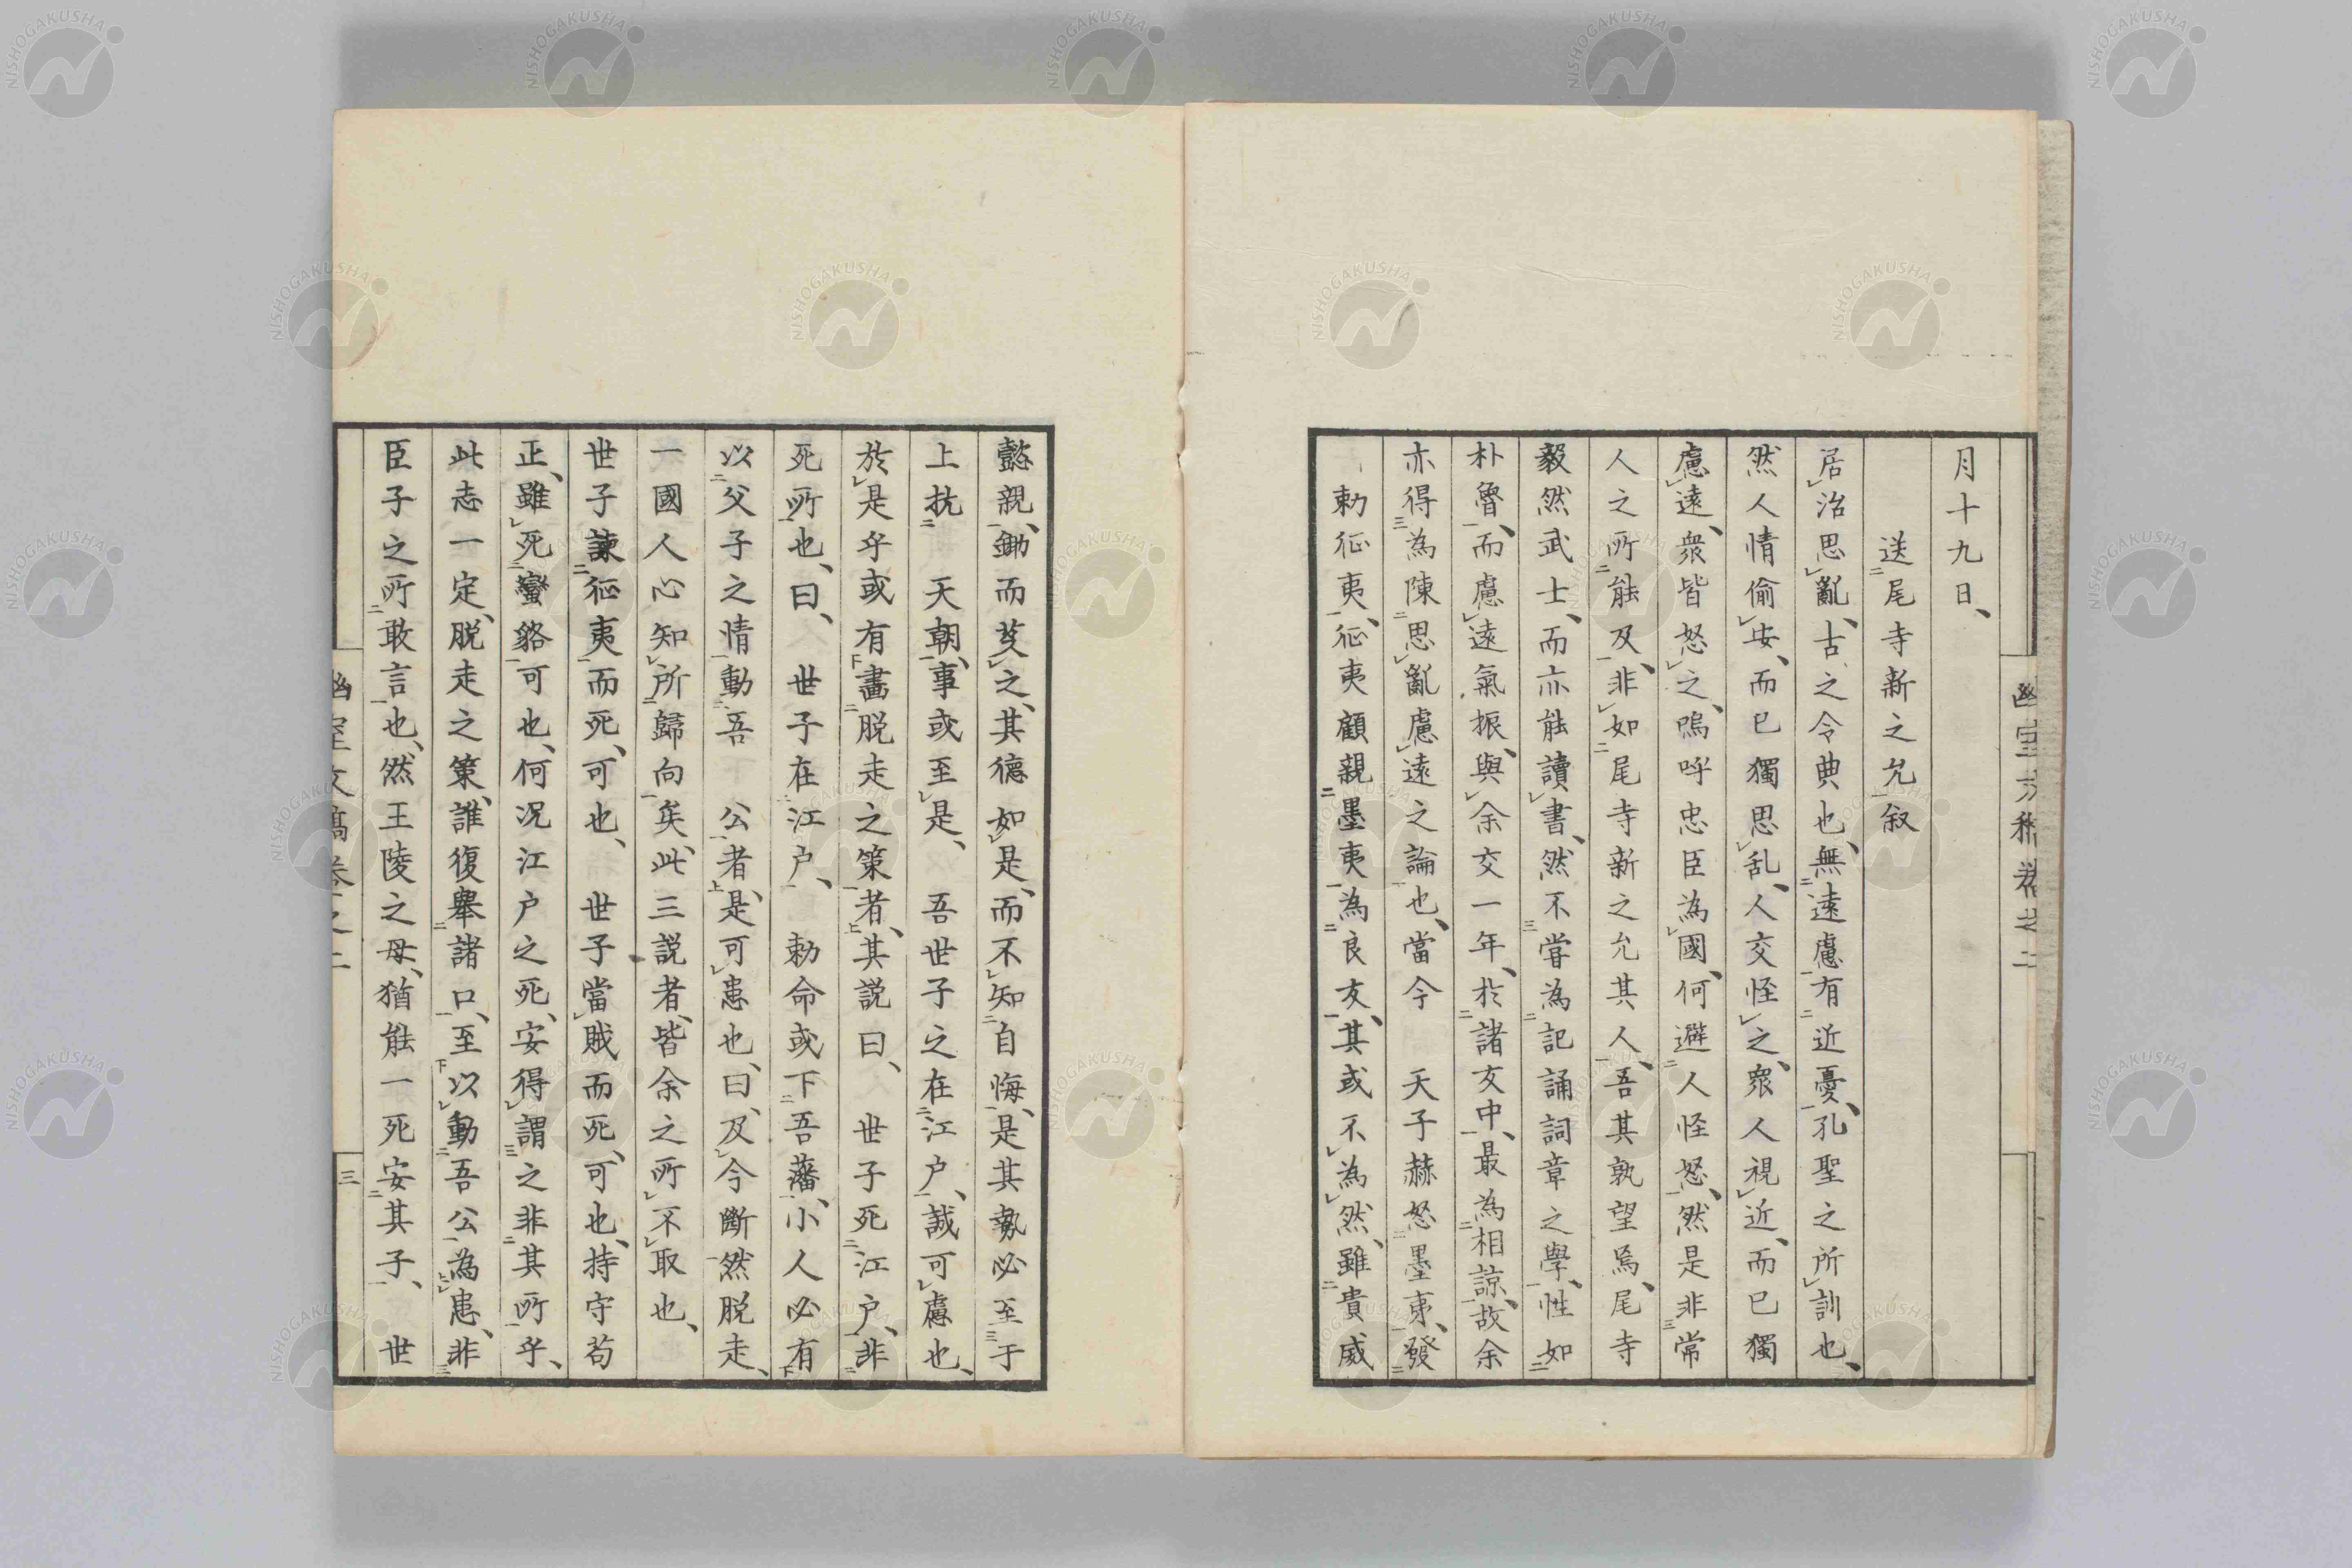 月十九日、
送尾寺新之允叙
居治思亂、古之令典也、無遠慮有近憂、孔聖之所訓也、
然人情偷安、而已獨思乱、人交怪之、衆人視近、而已獨
慮遠、衆皆怒之、嗚呼忠臣為國、何避人怪怒、然是非常
人之所能及、非如尾寺新之允其人、吾其孰望焉、尾寺
毅然武士、而亦能讀書、然不甞為記誦詞章之學、性如
朴魯、而慮遠氣振、與余交一年、於諸友中、最為相諒、故余
亦得為陳思亂慮遠之論也、當今　天子赫怒墨夷、發
勅征夷、征夷顧親墨夷為良友、其或不為然、雖貴戚
懿親、鋤而芟之、其德如是、而不知自悔、是其勢必至于
上抗　天朝、事或至是、　吾世子之在江户、誠可慮也、
於是乎或有畫脱走之策者、其説曰、　世子死江户、非
死所也、曰、　世子在江户、　勅命或下吾藩、小人必有
以父子之情動吾　公者、是可患也、曰、及今斷然脱走、
一國人心知所歸向矣、此三説者、皆余之所不取也、
世子諫征夷而死、可也、　世子當賊而死、可也、持守苟
正、雖死蠻貉可也、何况江户之死、安得謂之非其所乎、
此志一定、脱走之策、誰復舉諸口、至以動吾公為患、非
臣子之所敢言也、然王陵之母、猶能一死安其子、　世
幽室文稿卷之二
三
幽室文稿卷之二
NISHOGAKUSHA